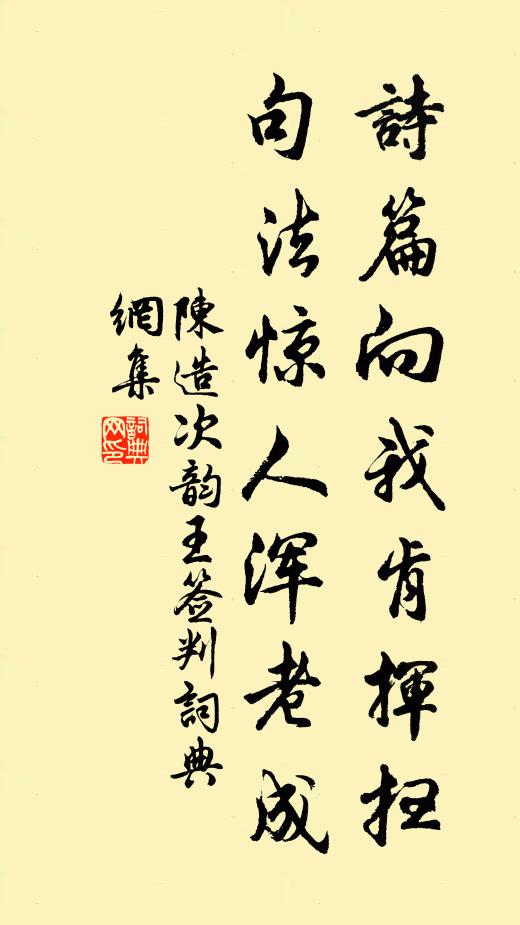 詩篇向我肯揮扫
句法惊人浑老成
陳造次韵王签判詞典
網集
詞典
网印